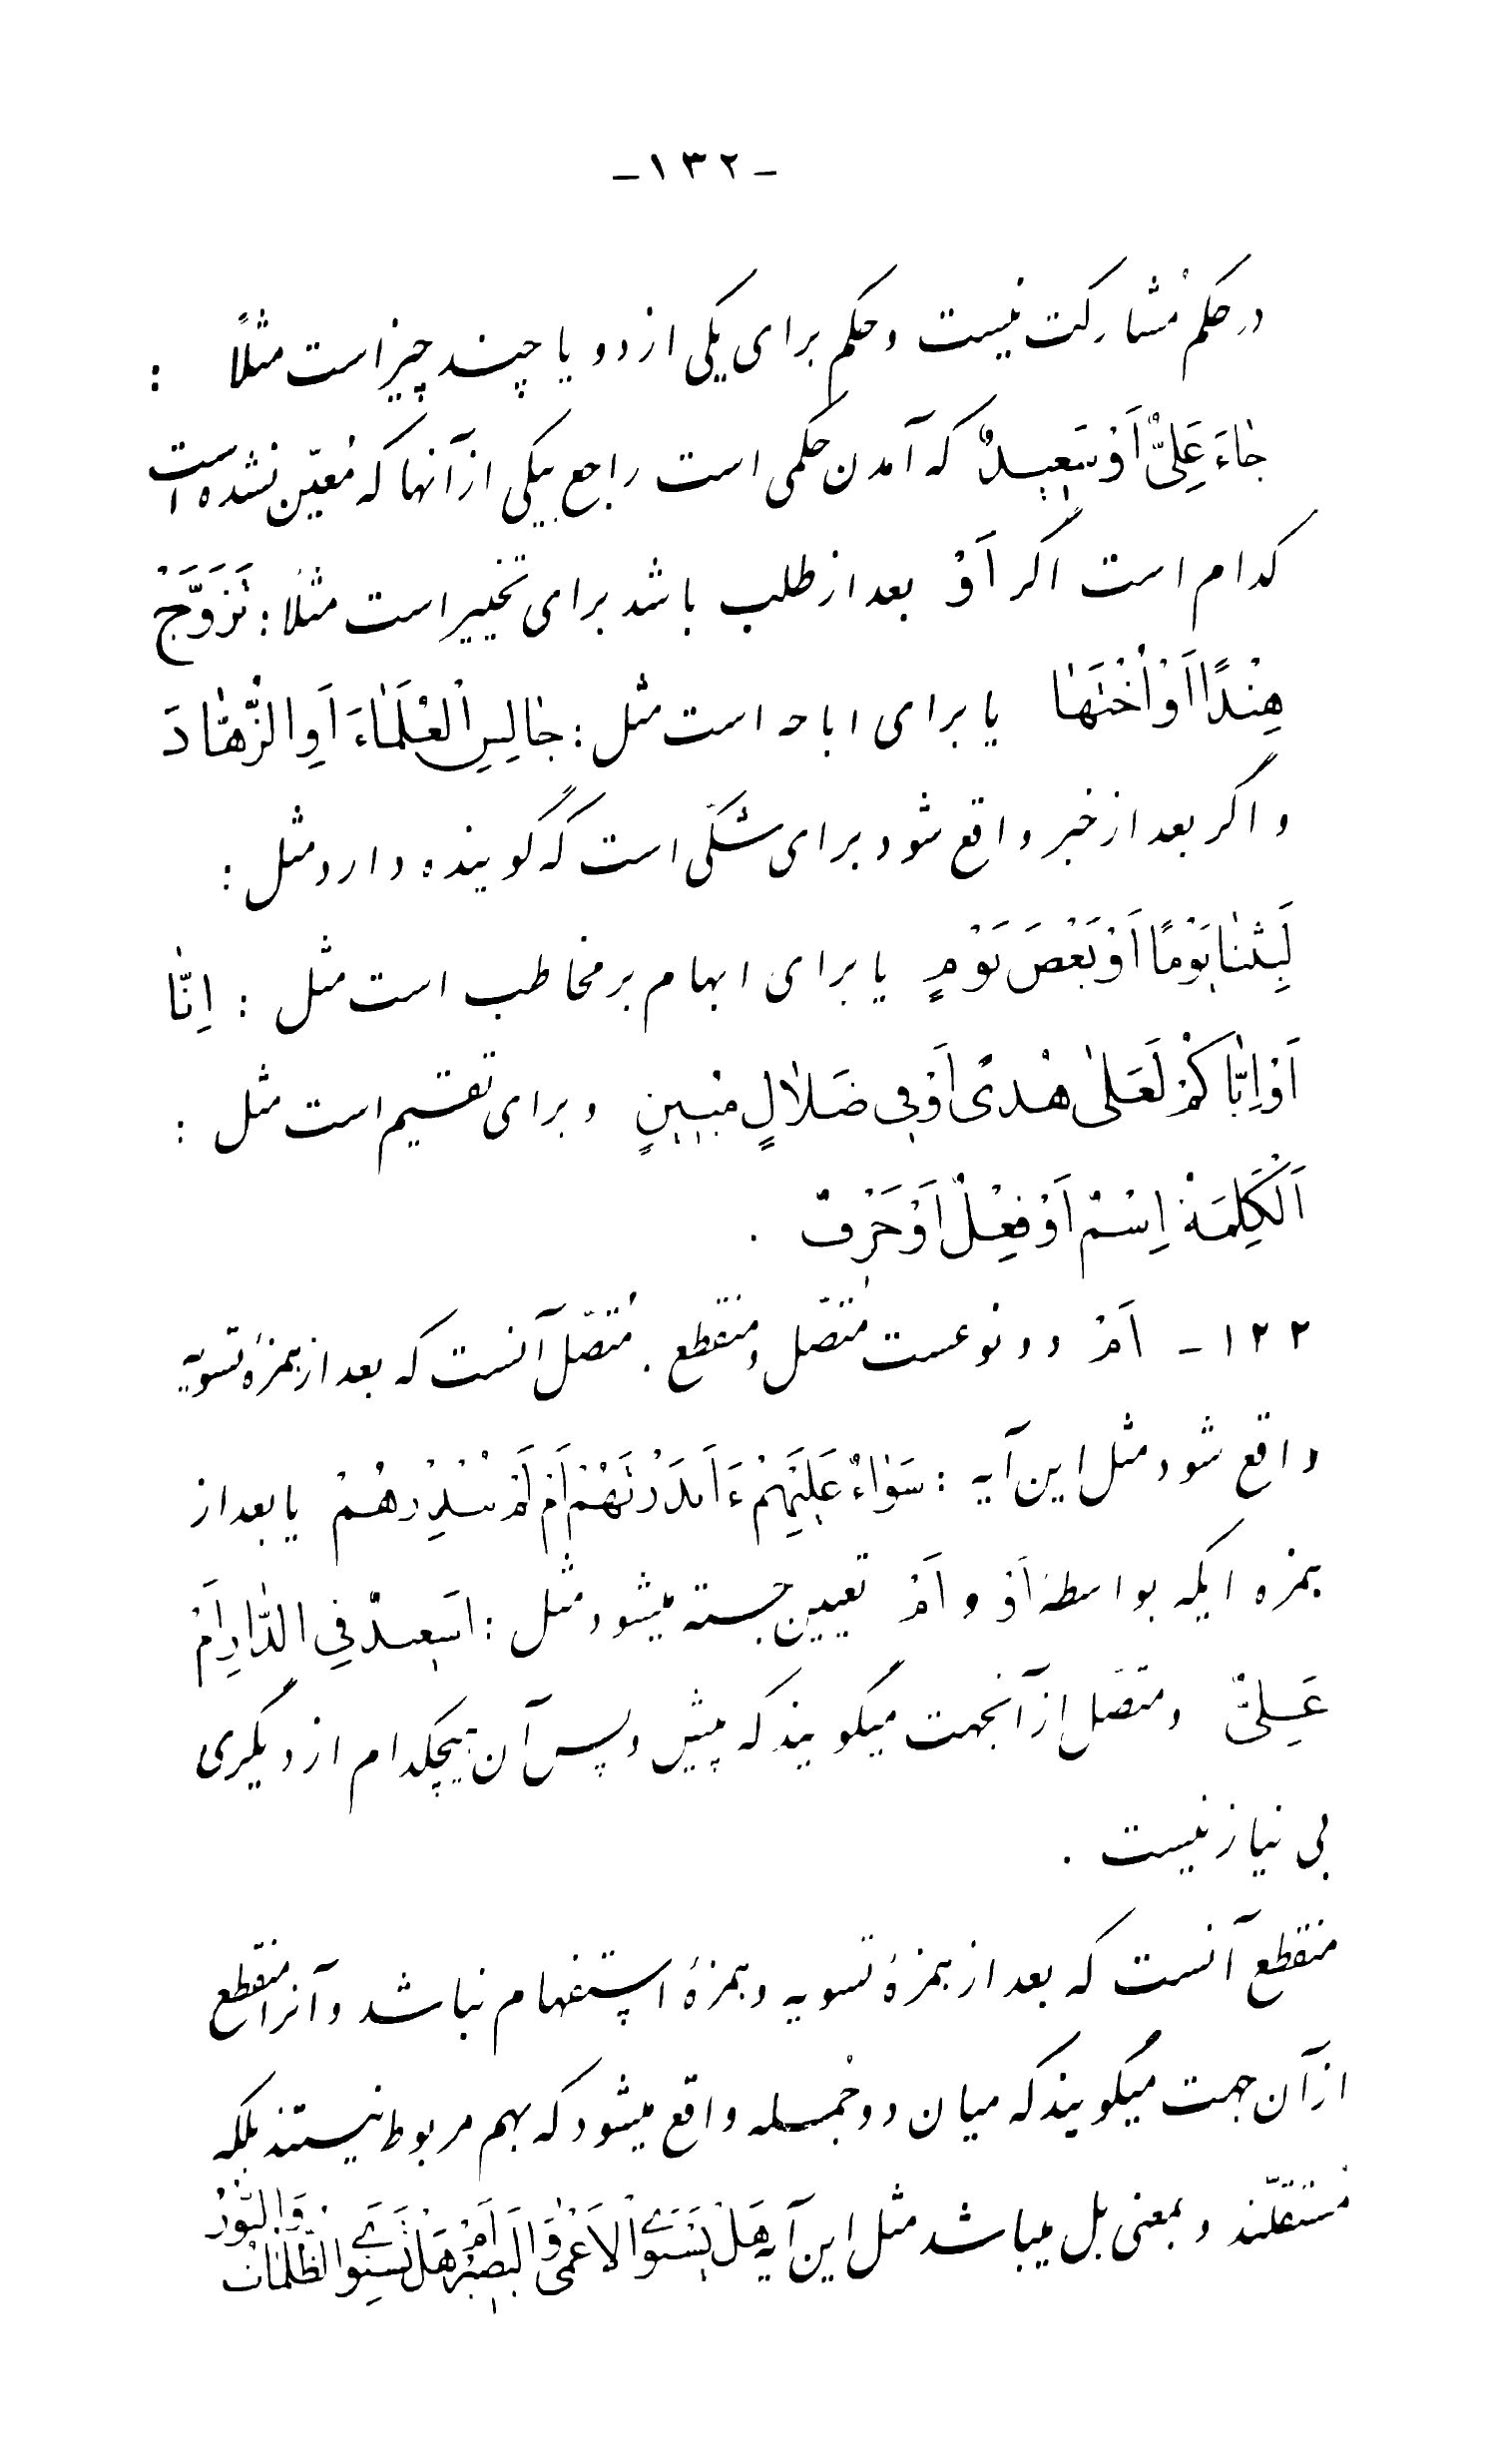 -۱۳۲-
در حکم مُشارکت نیست و حکم برای یکی از دو یا چند چیز است مثلاً :
جٰاءَ عَلِیٌّ اَوْ سَعیدٌ که آمدن حکمی است راجع بیکی از آنها که مُعیّن نشده است
کدام است اگر اَوْ بعد از طلب باشد برای تخییر است مثلاً : تَزَوَّجْ
هِنْدًا اَوْ اُخْتَهٰا یا برای اباحه است مثل : جٰالِسِ الْعُلَمٰاءَ اَوِ الزُّهّٰادَ
و اگر بعد از خبر واقع شود برای شکّی است که گوینده دارد مثل :
لَبِثْنٰا یَوْمًا اَوْ بَعْضَ یَوْمٍ یا برای ابهام بر مخاطب است مثل : اِنّٰا
اَوْ اِیّٰاکُمْ لَعَلیٰ هُدیً اَوْ فی ضَلاٰلٍ مُبینٍ و برای تقسیم است مثل :
اَلْکَلِمَةُ اِسْمٌ اَوْ فِعْلٌ اَوْ حَرْفٌ .
۱۲۲- اَمْ دو نوعست مُتّصل و منقطع . مُتّصل آنست که بعد از همزهٔ تسویه
واقع شود مثل این آیه : سَوٰاءٌ عَلَیْهِمْ ءَاَنْذَرْتَهُمْ اَمْ لَمْ تُنْذِرْهُمْ یا بعد از
همزه ایکه بواسطهٔ اَوْ و اَمْ تعیین جسته میشود مثل : اسَعیدٌ فِی الدّٰارِ اَمْ
عَلِیٌّ و متّصل از آنجهت میگویند که پیش و پس آن هیچکدام از دیگری
بی نیاز نیست .
منقطع آنست که بعد از همزهٔ تسویه و همزهٔ استفهام نباشد و آنرا منقطع
از آن جهت میگویند که میان دو جُمله واقع میشود که بهم مربوط نیستند بلکه
مُستقلّند و بمعنی بل میباشد مثل این آیه هَلْ یَسْتَوِی الْاَعْمٰی وَ الْبَصیرُ اَمْ هَلْ تَسْتَوِی الظُّلُمٰاتُ وَ النُّورُ